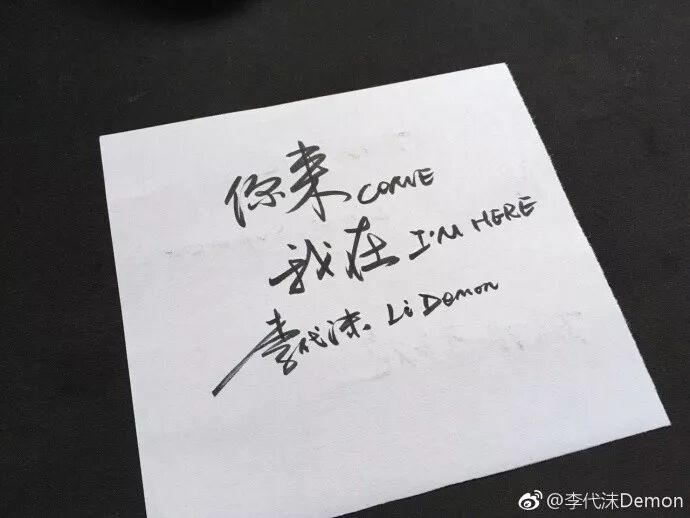 你来 COME
我在 I'M HERE
李代沫 Li Demon
@李代沫Demon